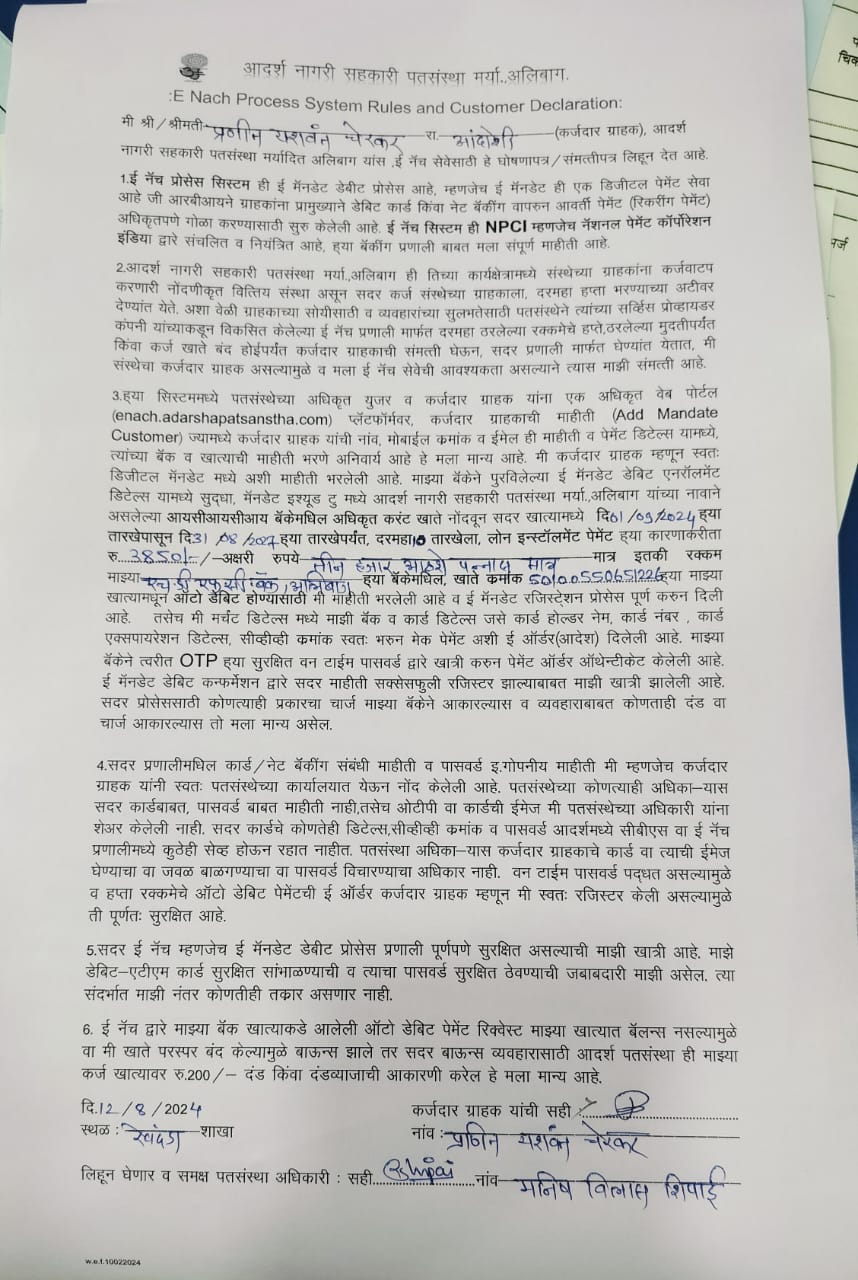 आदर्श नागरी सहकारी पतसंस्था मर्या.,अलिबाग.
:E Nach Process System Rules and Customer Declaration:
मी श्री/श्रीमती प्रविण यशवंत चेरकर रा. आंदोशी (कर्जदार ग्राहक), आदर्श
नागरी सहकारी पतसंस्था मर्यादित अलिबाग यांस ,ई नॅच सेवेसाठी हे घोषणापत्र/संमत्तीपत्र लिहून देत आहे.
1.ई नॅच प्रोसेस सिस्टम ही ई मॅनडेट डेबीट प्रोसेस आहे, म्हणजेच ई मॅनडेट ही एक डिजीटल पेमेंट सेवा
आहे जी आरबीआयने ग्राहकांना प्रामुख्याने डेबिट कार्ड किंवा नेट बॅकींग वापरुन आवर्ती पेमेंट (रिकरींग पेमेंट)
अधिकृतपणे गोळा करण्यासाठी सुरु केलेली आहे. ई नॅच सिस्टम ही NPCI म्हणजेच नॅशनल पेमेंट कॉर्पोरेशन
इंडिया द्वारे संचलित व नियंत्रित आहे, ह्या बॅकींग प्रणाली बाबत मला संपूर्ण माहीती आहे.
2.आदर्श नागरी सहकारी पतसंस्था मर्या.,अलिबाग ही तिच्या कार्यक्षेत्रामध्ये संस्थेच्या ग्राहकांना कर्जवाटप
करणारी नोंदणीकृत वित्तिय संस्था असून सदर कर्ज संस्थेच्या ग्राहकाला, दरमहा हप्ता भरण्याच्या अटीवर
देण्यांत येते. अशा वेळी ग्राहकाच्या सोयीसाठी व व्यवहारांच्या सुलभतेसाठी पतसंस्थेने त्यांच्या सर्व्हिस प्रोव्हायडर
कंपनी यांच्याकडून विकसित केलेल्या ई नॅच प्रणाली मार्फत दरमहा ठरलेल्या रक्कमेचे हप्ते,ठरलेल्या मुदतीपर्यंत
किंवा कर्ज खाते बंद होईपर्यंत कर्जदार ग्राहकाची संमत्ती घेऊन, सदर प्रणाली मार्फत घेण्यांत येतात, मी
संस्थेचा कर्जदार ग्राहक असल्यामुळे व मला ई नॅच सेवेची आवश्यकता असल्याने त्यास माझी संमत्ती आहे.
3.ह्या सिस्टममध्ये पतसंस्थेच्या अधिकृत युजर व कर्जदार ग्राहक यांना एक अधिकृत वेब पोर्टल
(enach.adarshapatsanstha.com) प्लॅटफॉर्मवर, कर्जदार ग्राहकाची माहीती (Add Mandate
Customer) ज्यामध्ये कर्जदार ग्राहक यांची नांव, मोबाईल क्रमांक व ईमेल ही माहीती व पेमेंट डिटेल्स यामध्ये,
त्यांच्या बॅक व खात्याची माहीती भरणे अनिवार्य आहे हे मला मान्य आहे. मी कर्जदार ग्राहक म्हणून स्वतः
डिजीटल मॅनडेट मध्ये अशी माहीती भरलेली आहे. माझ्या बॅकेने पुरविलेल्या ई मॅनडेट डेबिट एनरॉलमेंट
डिटेल्स यामध्ये सुद्धा, मॅनडेट इश्यूड टु मध्ये आदर्श नागरी सहकारी पतसंस्था मर्या.,अलिबाग यांच्या नावाने
असलेल्या आयसीआयसीआय बॅकेमधिल अधिकृत करंट खाते नोंदवून सदर खात्यामध्ये दि01/09/2024 ह्या
तारखेपासून दि31/08/2027 ह्या तारखेपर्यंत, दरमहा10 तारखेला, लोन इन्स्टॉलमेंट पेमेंट ह्या कारणाकरीता
रु.3850/-/–अक्षरी रुपये तीन हजार आठशे पन्नास मात्र मात्र इतकी रक्कम
माझ्या एच डी एफ सी बँक, अलिबाग ह्या बॅकेमधिल, खाते क्रमांक 50100550651226 ह्या माझ्या
खात्यामधून ऑटो डेबिट होण्यासाठी मी माहीती भरलेली आहे व ई मॅनडेट रजिस्टे्शन प्रोसेस पूर्ण करुन दिली
आहे. तसेच मी मर्चंट डिटेल्स मध्ये माझी बॅक व कार्ड डिटेल्स जसे कार्ड होल्डर नेम, कार्ड नंबर , कार्ड
एक्सपायरेशन डिटेल्स, सीव्हीव्ही क्रमांक स्वतः भरुन मेक पेमेंट अशी ई ऑर्डर(आदेश) दिलेली आहे. माझ्या
बॅकेने त्वरीत OTP ह्या सुरक्षित वन टाईम पासवर्ड द्वारे खात्री करुन पेमेंट ऑर्डर ऑथेन्टीकेट केलेली आहे.
ई मॅनडेट डेबिट कन्फर्मेशन द्वारे सदर माहीती सक्सेसफुली रजिस्टर झाल्याबाबत माझी खात्री झालेली आहे.
सदर प्रोसेससाठी कोणत्याही प्रकारचा चार्ज माझ्या बॅकेने आकारल्यास व व्यवहाराबाबत कोणताही दंड वा
चार्ज आकारल्यास तो मला मान्य असेल.
4.सदर प्रणालीमधिल कार्ड/नेट बॅकींग संबंधी माहीती व पासवर्ड इ.गोपनीय माहीती मी म्हणजेच कर्जदार
ग्राहक यांनी स्वतः पतसंस्थेच्या कार्यालयात येऊन नोंद केलेली आहे. पतसंस्थेच्या कोणत्याही अधिका–यास
सदर कार्डबाबत, पासवर्ड बाबत माहीती नाही,तसेच ओटीपी वा कार्डची ईमेज मी पतसंस्थेच्या अधिकारी यांना
शेअर केलेली नाही. सदर कार्डचे कोणतेही डिटेल्स,सीव्हीव्ही क्रमांक व पासवर्ड आदर्शमध्ये सीबीएस वा ई नॅच
प्रणालीमध्ये कुठेही सेव्ह होऊन रहात नाहीत. पतसंस्था अधिका–यास कर्जदार ग्राहकाचे कार्ड वा त्याची ईमेज
घेण्याचा वा जवळ बाळगण्याचा वा पासवर्ड विचारण्याचा अधिकार नाही. वन टाईम पासवर्ड पद्धत असल्यामुळे
व हप्ता रक्कमेचे ऑटो डेबिट पेमेंटची ई ऑर्डर कर्जदार ग्राहक म्हणून मी स्वतः रजिस्टर केली असल्यामुळे
ती पूर्णतः सुरक्षित आहे.
5.सदर ई नॅच म्हणजेच ई मॅनडेट डेबीट प्रोसेस प्रणाली पूर्णपणे सुरक्षित असल्याची माझी खात्री आहे. माझे
डेबिट–एटीएम कार्ड सुरक्षित सांभाळण्याची व त्याचा पासवर्ड सुरक्षित ठेवण्याची जबाबदारी माझी असेल. त्या
संदर्भात माझी नंतर कोणतीही तक्रार असणार नाही.
6. ई नॅच द्वारे माझ्या बॅक खात्याकडे आलेली ऑटो डेबिट पेमेंट रिक्वेस्ट माझ्या खात्यात बॅलन्स नसल्यामुळे
वा मी खाते परस्पर बंद केल्यामुळे बाऊन्स झाले तर सदर बाऊन्स व्यवहारासाठी आदर्श पतसंस्था ही माझ्या
कर्ज खात्यावर रु.200/– दंड किंवा दंडव्याजाची आकारणी करेल हे मला मान्य आहे.
दि.12/8/2024 कर्जदार ग्राहक यांची सही :
स्थळ : रेवदंडा शाखा नांव : प्रविण यशवंत चेरकर
लिहून घेणार व समक्ष पतसंस्था अधिकारी : सही नांव मनिष विलास शिपाई
w.e.f.10022024